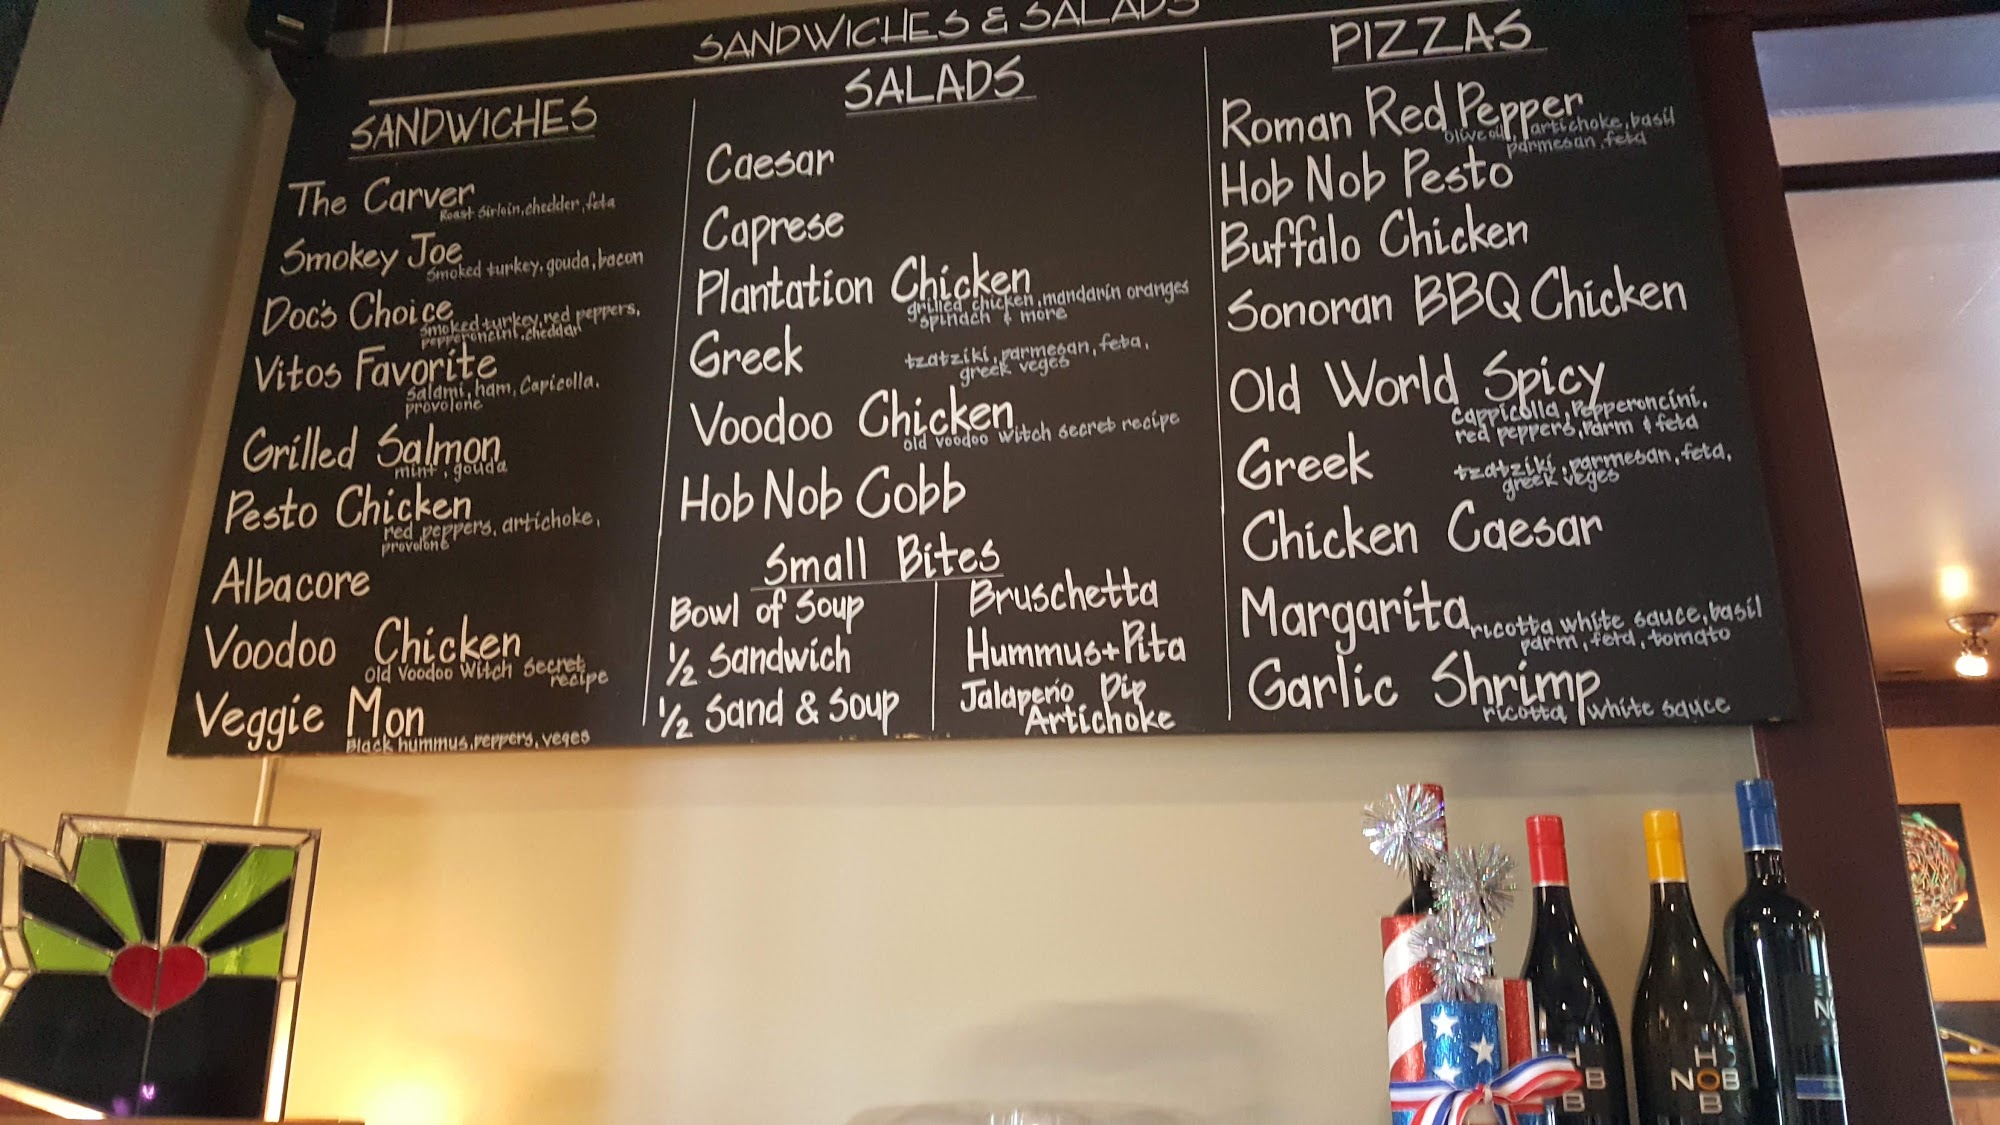 SANDWICHES & SALADS
SANDWICHES
The Carver
Roast Sirloin, chedder, feta
Smokey Joe
Smoked turkey, gouda, bacon
Doc's Choice
Smoked turkey, red peppers,
pepperoncini, cheddar
Vitos Favorite
Salami, ham, Capicolla.
provolone
Grilled Salmon
mint, gouda
Pesto Chicken
red peppers, artichoke,
provolone
Albacore
Voodoo Chicken
Old Voodoo Witch Secret
recipe
Veggie Mon
Black hummus, peppers, veges
SALADS
Caesar
Caprese
Plantation Chicken
grilled chicken, mandarin oranges
spinach & more
Greek
tzatziki, parmesan, feta,
greek veges
Voodoo Chicken
old voodoo witch secret recipe
Hob Nob Cobb
Small Bites
Bowl of Soup
1/2 Sandwich
1/2 Sand & Soup
Bruschetta
Hummus+Pita
Jalapeño Dip
Artichoke
PIZZAS
Roman Red Pepper
olive oil, artichoke, basil
parmesan, feta
Hob Nob Pesto
Buffalo Chicken
Sonoran BBQ Chicken
Old World Spicy
Cappicolla, Pepperoncini,
red peppers, Parm & feta
Greek
tzatziki, parmesan, feta,
greek veges
Chicken Caesar
Margarita
ricotta white sauce, basil
parm, feta, tomato
Garlic Shrimp
ricotta white sauce
H
OB
B
HO
NOB
B
N